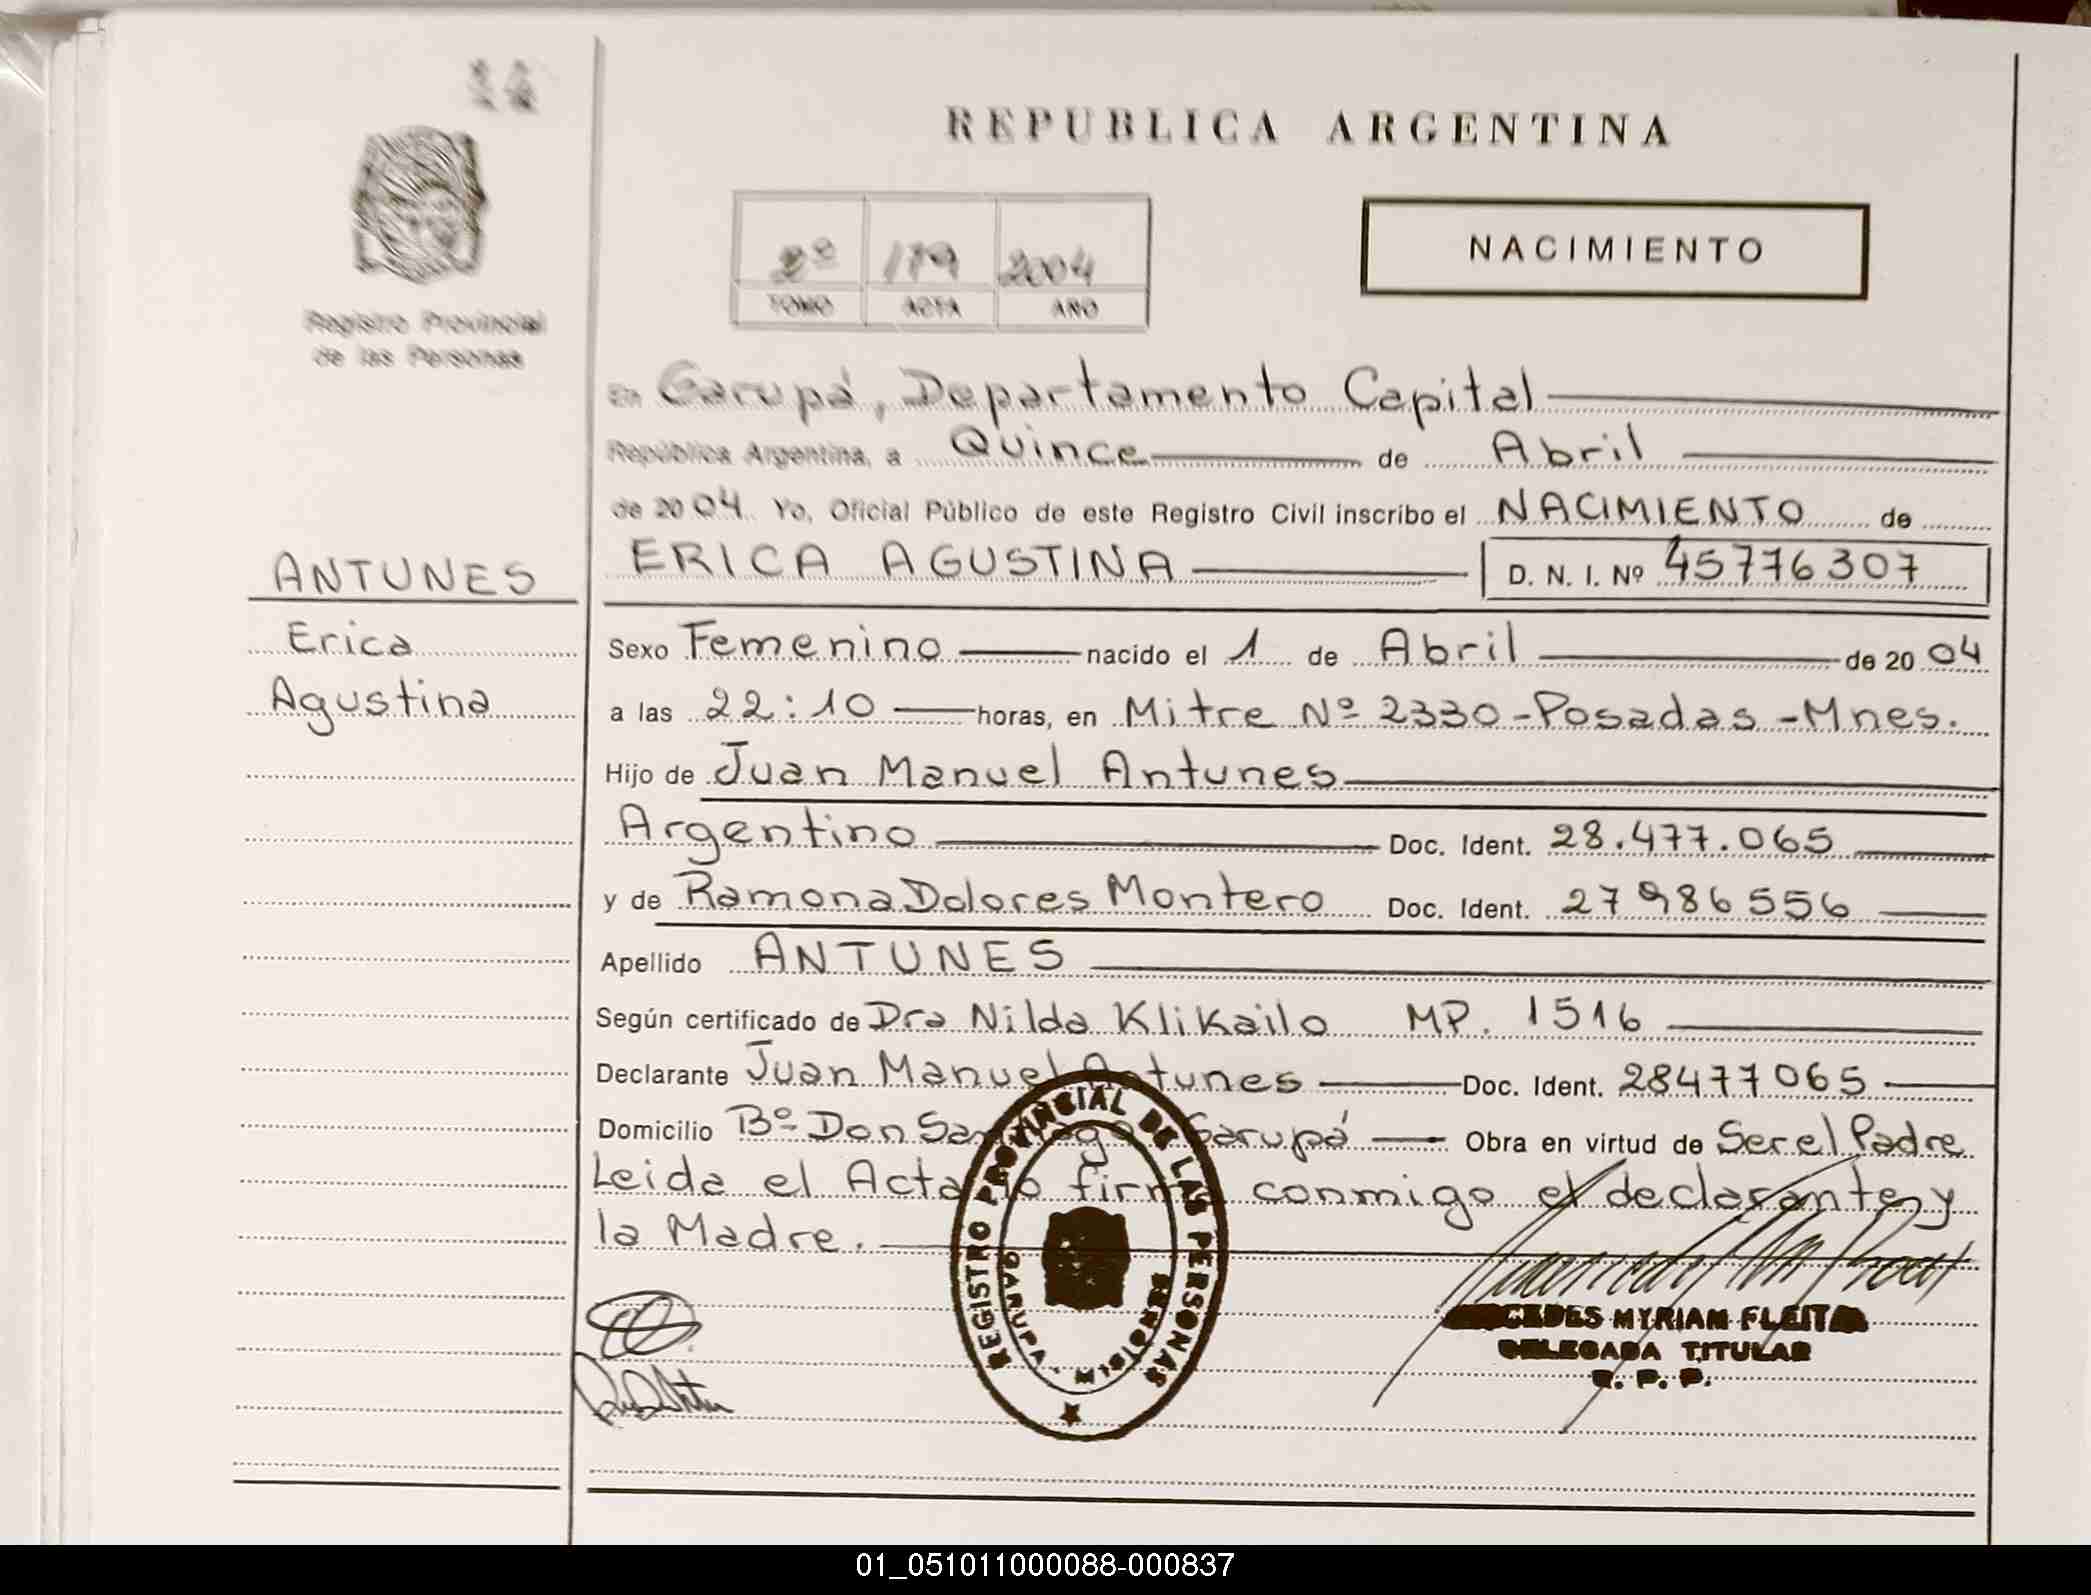 Registro Provincial
de las Personas
REPUBLICA ARGENTINA
NACIMIENTO
2º 179 2004
TOMO ACTA AÑO
En Garupá, Departamento Capital
República Argentina, a Quince de Abril
de 2004 Yo, Oficial Público de este Registro Civil inscribo el NACIMIENTO de
ANTUNES
Erica
Agustina
ERICA AGUSTINA D. N. I. Nº 45776307
Sexo Femenino nacido el 1 de Abril de 2004
a las 22:10 horas, en Mitre Nº 2330-Posadas-Mnes.
Hijo de Juan Manuel Antunes
Argentino Doc. Ident. 28.477.065
y de Ramona Dolores Montero Doc. Ident. 27986556
Apellido ANTUNES
Según certificado de Dra Nilda Klikailo MP. 1516
Declarante Juan Manuel Antunes Doc. Ident. 28477065
Domicilio Bº Don Garupá Obra en virtud de Ser el Padre
Leida el Acta lo firma conmigo el declarante y
la Madre.
REGISTRO PROVINCIAL DE LAS PERSONAS
GARUPA
MYRIAM FLEITA
DELEGADA TITULAR
R. P. P.
01_051011000088-000837